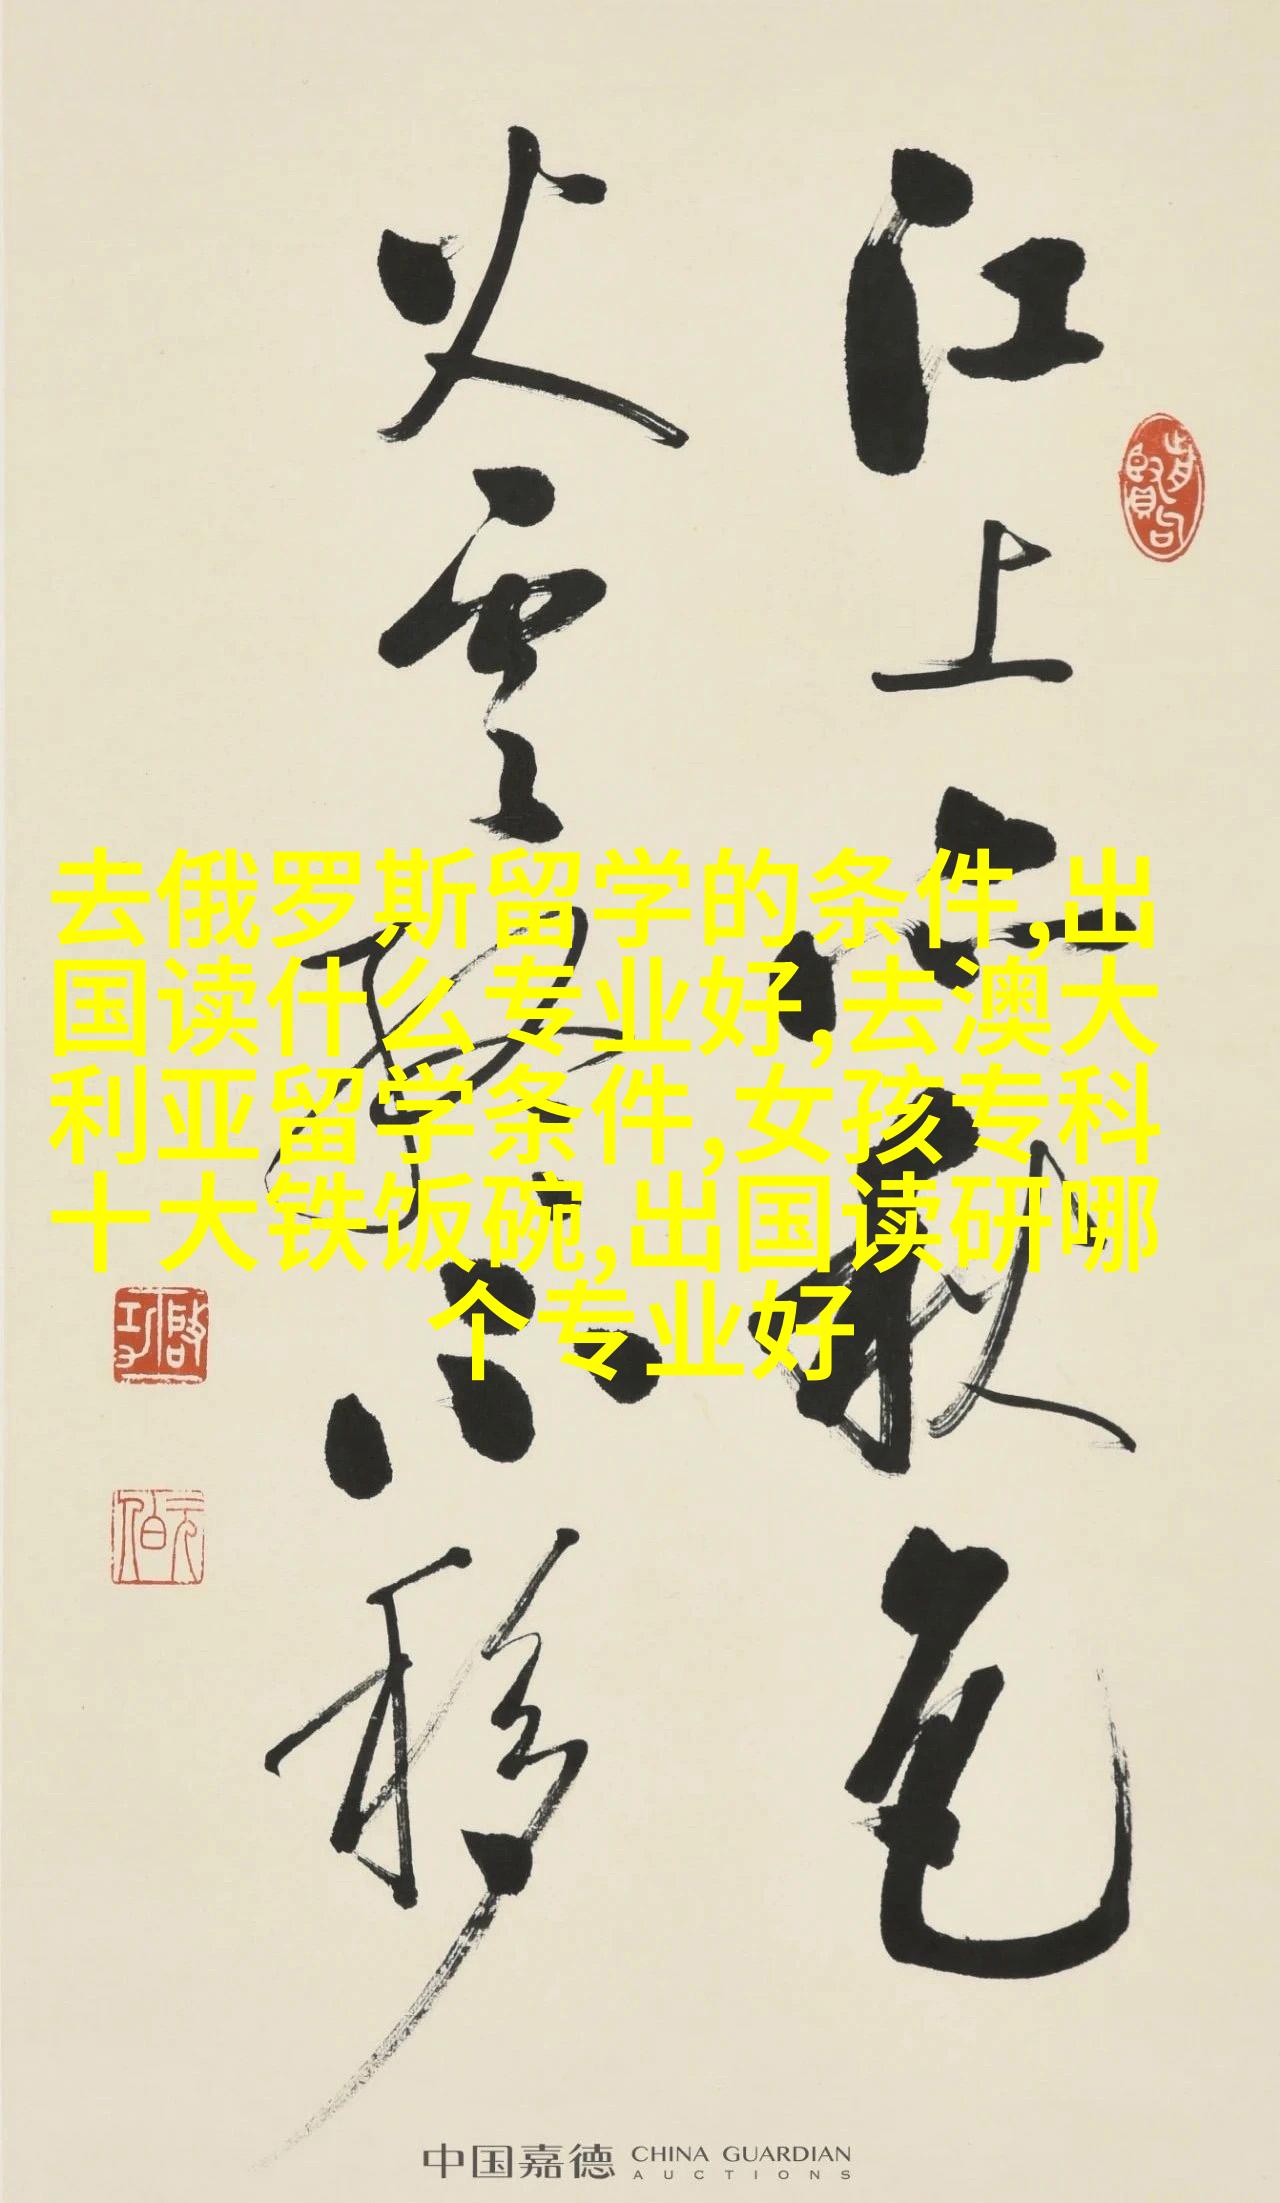 江上正秋色
火雲終不移
啓功
元伯
去俄罗斯留学的条件,出
国读什么专业好,去澳大
利亚留学条件,女孩专科
十大铁饭碗,出国读研哪
个专业好
中国嘉德 CHINA GUARDIAN
AUCTIONS